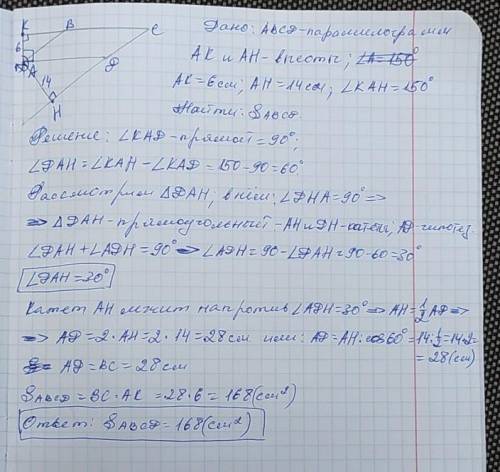 K B C
Дано: ABCD-параллелограмм
6
AK и AH-высоты; ∠A=150°
A D
AK=6см; AH=14см; ∠KAH=150°
14
H
Найти: SABCD
Решение: ∠KAD-прямой=90°;
∠DAH=∠KAH-∠KAD=150-90=60°
Рассмотрим △DAH, в нём: ∠DHA=90° =>
=> △DAH-прямоугольный-AH и DH-катеты, AD-гипотез.
∠DAH+∠ADH=90° => ∠ADH=90-∠DAH=90-60=30°
∠DAH=30°
Катет AH лежит напротив ∠ADH=30° => AH=1/2 AD =>
=> AD=2·AH=2·14=28см или: AD=AH:cos60°=14:1/2=14·2=
=28(см)
AD=BC=28см
SABCD=BC·AK=28·6=168(см²)
Ответ: SABCD=168(см²)